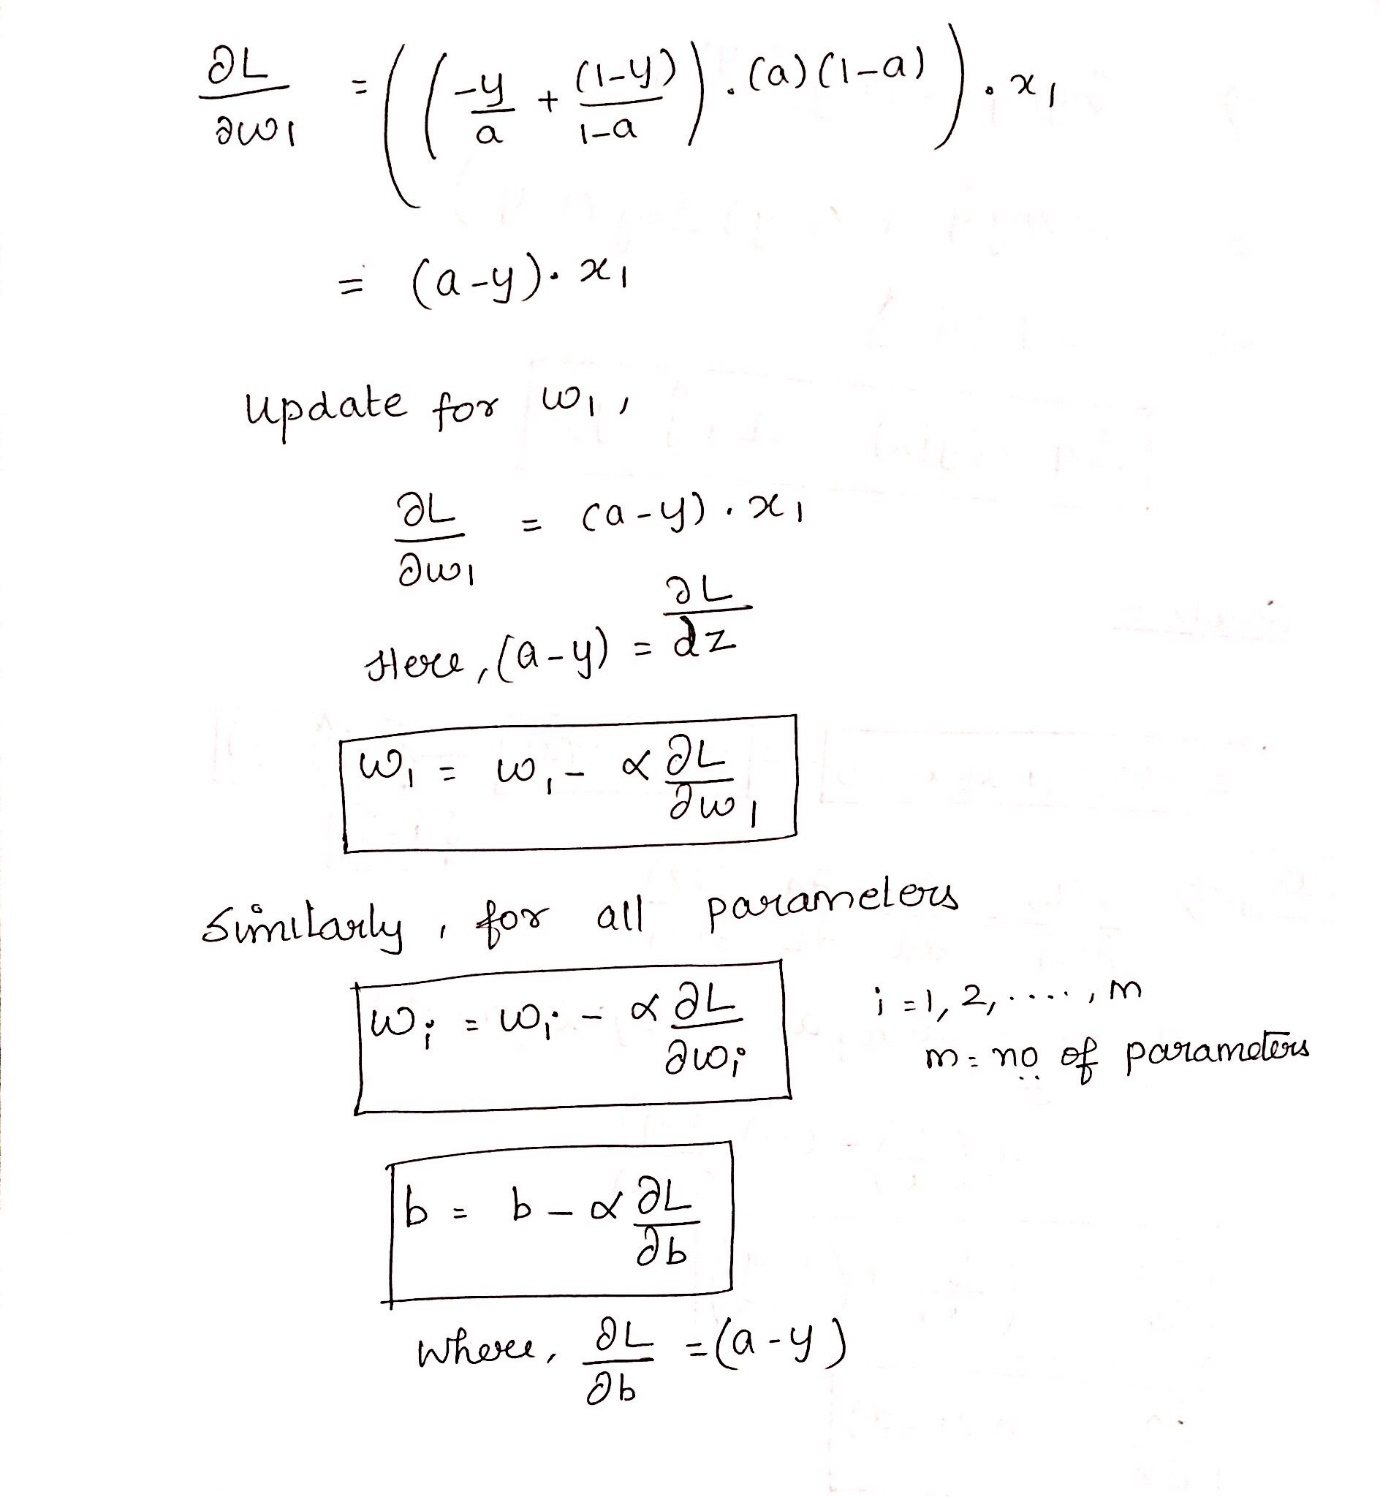 ∂L/∂w1 = ((-y/a + (1-y)/1-a) . (a)(1-a)) . x1
= (a-y). x1
update for w1,
∂L/∂w1 = (a-y) . x1
Here, (a-y) = ∂L/dz
w1 = w1 - α ∂L/∂w1
Similarly, for all parameters
wi = wi - α ∂L/∂wi   i = 1, 2, ...., m
m = no of parameters
b = b - α ∂L/∂b
where, ∂L/∂b = (a-y)